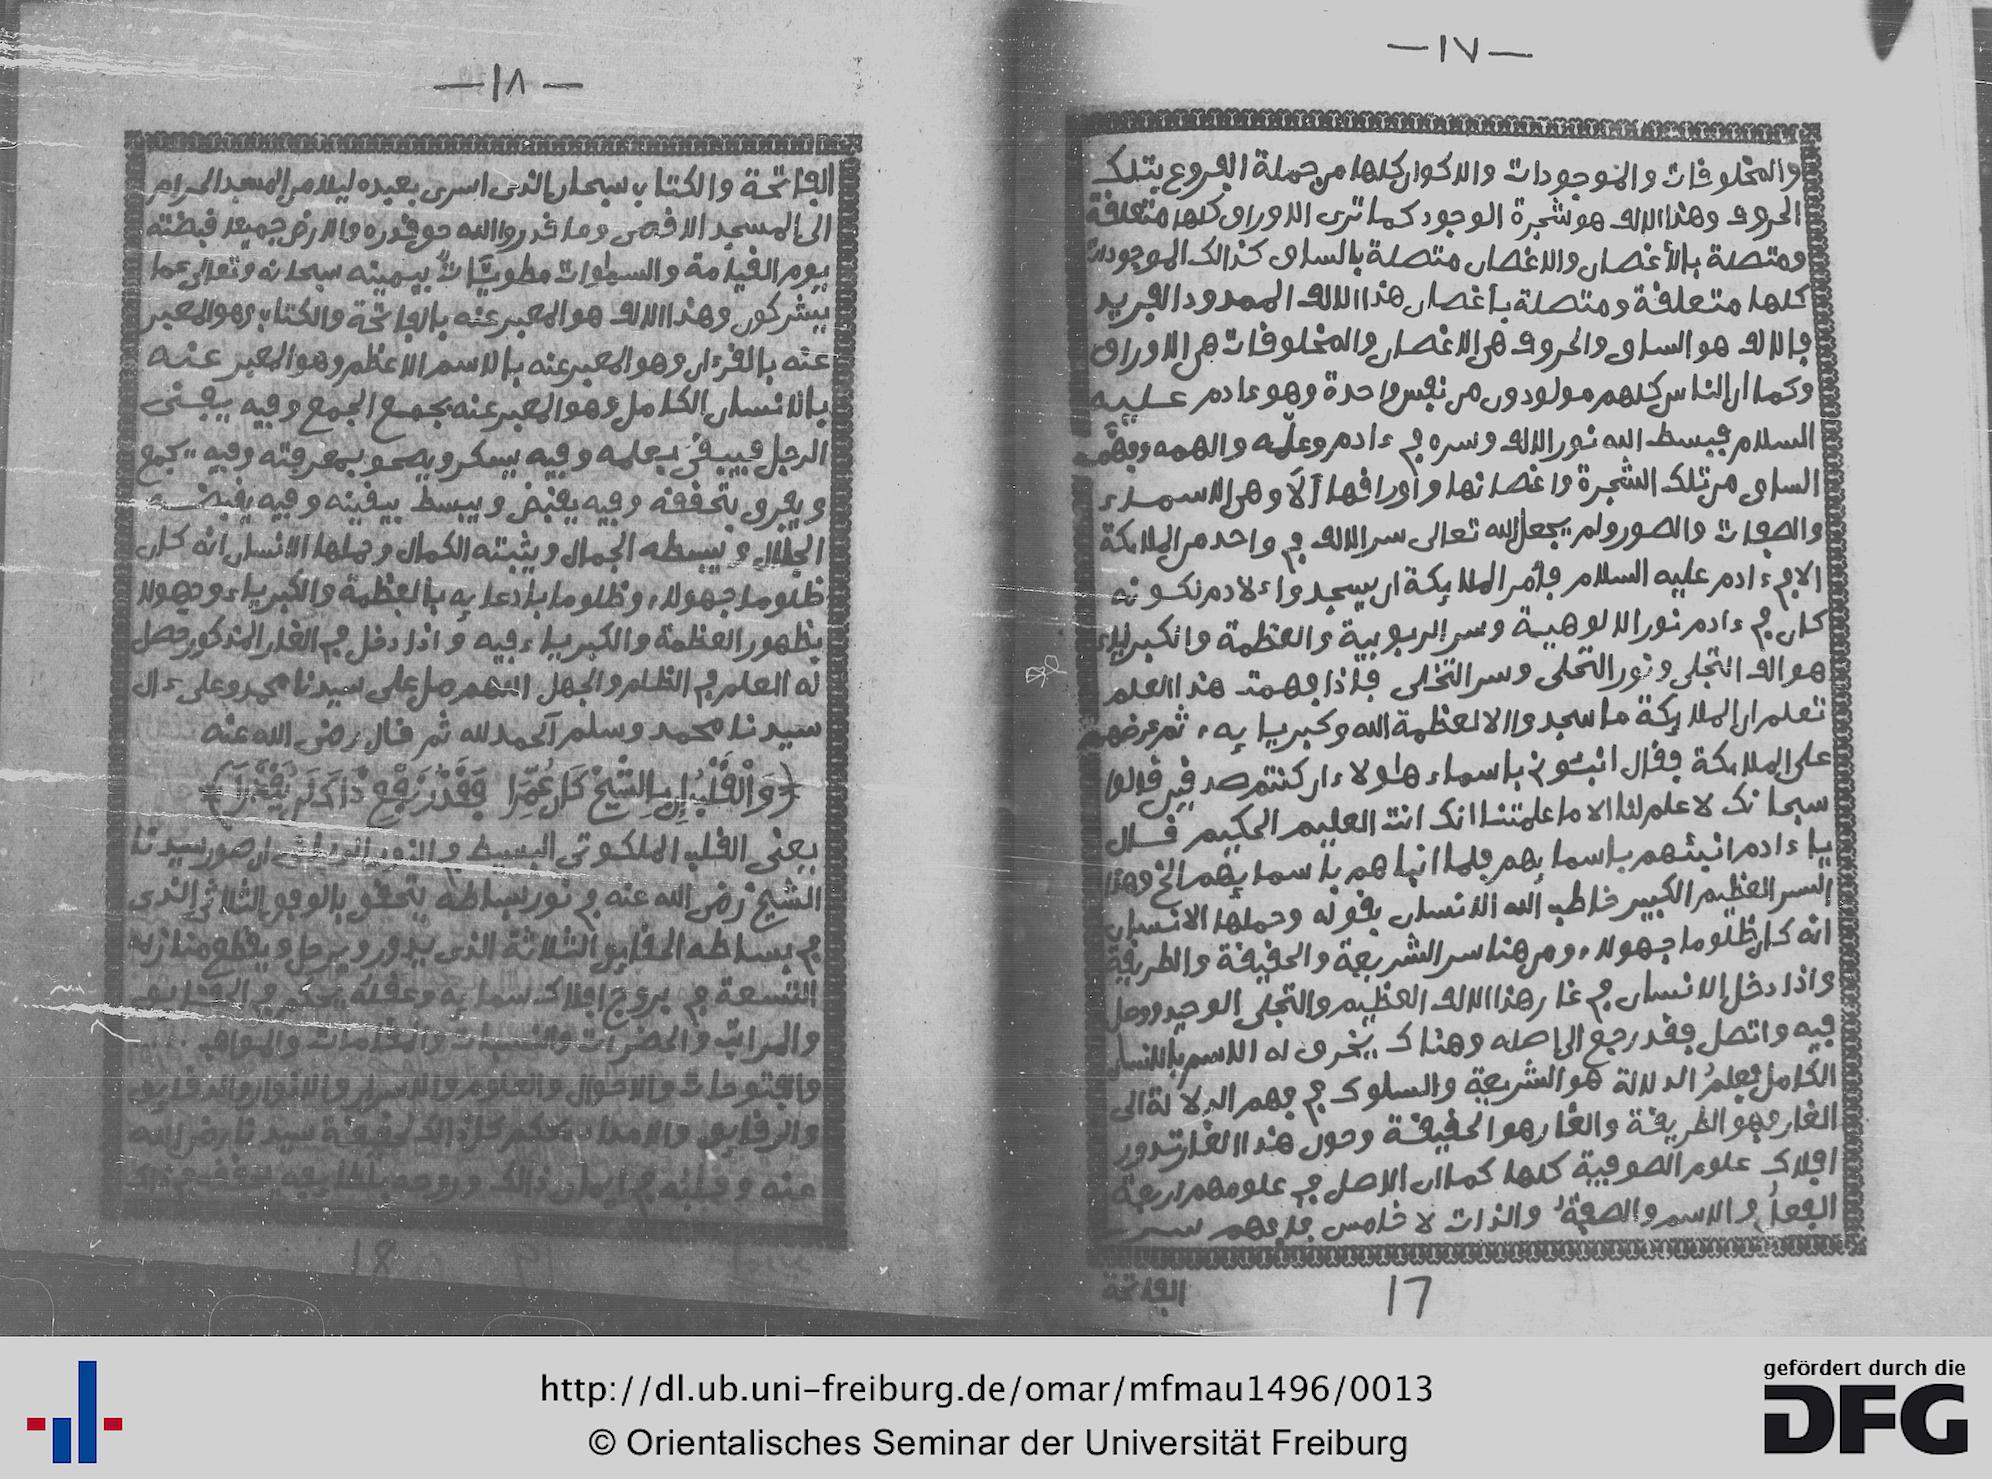 — ١٧ —
والمخلوفات والموجودات والاكوان كلها من جملة الفروع بتلك
الحروف وهذا الالف هو شجرة الوجود كما ترى الاوراق كلها متعلفة
ومتصلة بالأغصان والاغصان متصلة بالساق كذالك الموجودات
كلها متعلفة ومتصلة بأغصان هذا الالف الممدود الفريد
فالالف هو الساق والحروف هى الاغصان والمخلوفات هى الاوراق
وكما ان الناس كلهم مولودون من نفس واحدة وهو ءادم عليه
السلام فبسط الله نور الالف وسره في ءادم وعلّمه والهمه وفهّمه
الساق من تلك الشجرة واغصانها وأورافها ألا وهى الاسماء
والصفات والصور ولم يجعل الله تعالى سر الالف في واحد من الملايكة
الا في ءادم عليه السلام فأمر الملايكة ان يسجدوا ءلادم لكونه
كان في ءادم نور الالوهية وسر الربوبية والعظمة والكبرياء
هو الف التجلى ونور التحلى وسر التخلى فإذا فهمت هذا العلم
تعلم ان الملايكة ما سجدوا الا لعظمة الله وكبريايه، ثم عرضهم
على الملايكة ففال انبئونى باسماء هٰولاء ان كنتم صدفين فالوا
سبحانك لا علم لنا الا ما علمتنا انك انت العليم الحكيم فال
يا ءادم انبئهم باسمايهم فلما انباهم باسمايهم الخ وهذا
السر العظيم الكبير خاطب الله الانسان بفوله وحملها الانسان
انه كان ظلوما جهولا، ومن هنا سر الشريعة والحفيفة والطريفة
واذا دخل الانسان في غار هذا الالف العظيم والتجلى الوحيد ووصل
فيه واتصل ففد رجع الى اصله وهناك يخرق له الاسم بالانسان
الكامل فعلم الدلالة هو الشريعة والسلوك في فهم الدلالة الى
الغار فهو الطريفة والغار هو الحفيفة وحول هذا الغار تدور
افلاك علوم الصوفية كلها كما ان الاصل في علومهم اربعة
الفعل والاسم والصفة والذات لا خامس فافهم سر
الفاتحة
17
— ١٨ —
الفاتحة والكتاب سبحان الذى اسرى بعبده ليلا من المسجد الحرام
الى المسجد الافصى وما فدروا الله حق فدره والارض جميعا فبضته
يوم الفيامة والسمٰوات مطويّاتٌ بيمينه سبحانه وتعالى عما
يشركون وهذا الالف هو المعبر عنه بالفاتحة والكتاب وهو المعبر
عنه بالفرءان وهو المعبر عنه بالاسم الاعظم وهو المعبر عنه
بالانسان الكامل وهو المعبر عنه بجمع الجمع وفيه يفنى
الرجل فيبفى بعلمه وفيه يسكر ويصحو بمعرفته وفيه يجمع
ويفرق بتحففه وفيه يفبض ويبسط بيفينه وفيه يفبضه
الجلال ويبسطه الجمال ويثبته الكمال وحملها الانسان انه كان
ظلوما جهولا، وظلوما بادعايه بالعظمة والكبرياء وجهولا
بظهور العظمة والكبرياء فيه واذا دخل في الغار المذكور حصل
له العلم في الظلم والجهل اللهم صل على سيدنا محمد وعلى ءال
سيدنا محمد وسلم الحمد لله ثم فال رضى الله عنه
﴿وَالْفَلْبُ إِن بِالشَّيْخِ كَانَ عُمِّرَا فَفَدْ رَفِى ذَاكَ لَن يُّفَهْفَرَا﴾
يعنى الفلب الملكوتى البسيط والنور ان صور سيدنا
الشيخ رضى الله عنه في نور بساطه يتحفق بالوفق الثلاثى الذى
في بساطه الحفايق الثلاثة الذى يدور ويرحل ويفطع منازله
التسعة في بروج افلاك سمايه وعفله يحكم في الحفايق
والمراتب والحضرات والنسبات والمفامات والمواهب
والفتوحات والاحوال والعلوم والاسرار والانوار والدفايق
والرفايق والامداد بحكم كذالك لحفيفة سيدنا رضى الله
عنه وفلبه في ايمان ذالك وروحه في ذاك
18
http://dl.ub.uni-freiburg.de/omar/mfmau1496/0013
© Orientalisches Seminar der Universität Freiburg
gefördert durch die
DFG